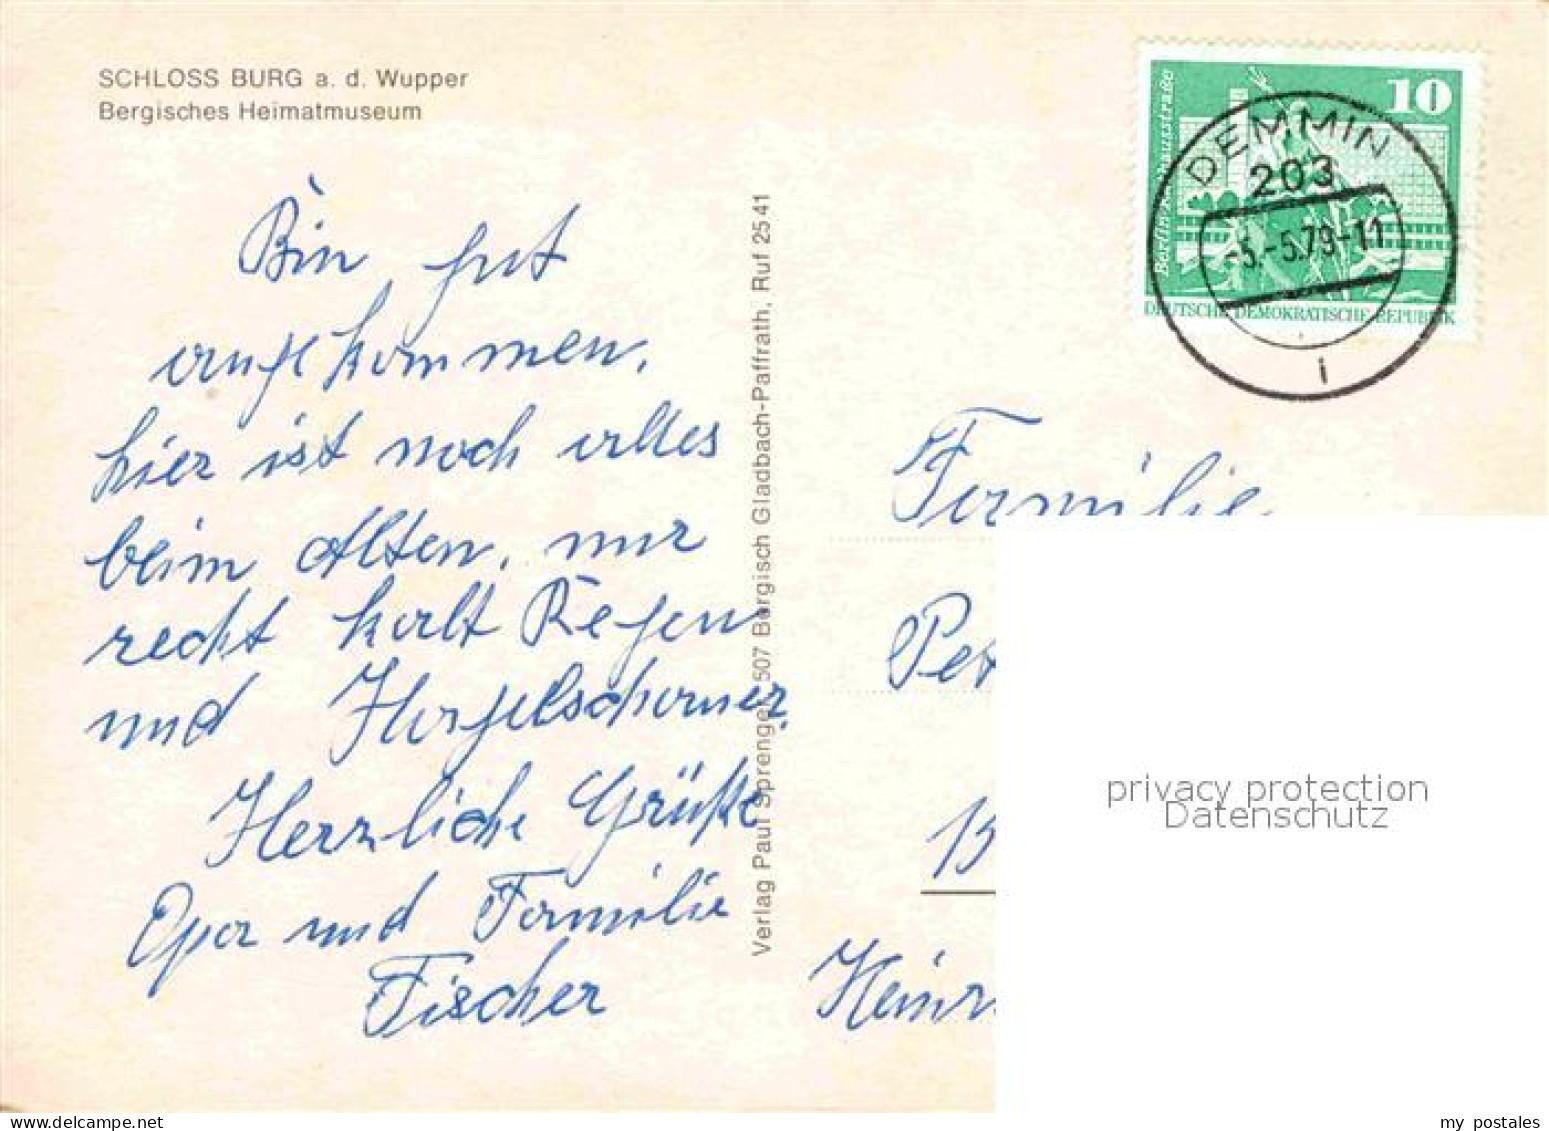 SCHLOSS BURG a. d. Wupper
Bergisches Heimatmuseum
Bin gut
angekommen,
hier ist noch alles
beim Alten, nur
recht kalt Regen
und Hagelschauer.
Herzliche Grüße
Opa und Familie
Fischer
Verlag Paul Sprenger, 507 Bergisch Gladbach-Paffrath, Ruf 25 41
10
Berlin,
DEUTSCHE DEMOKRATISCHE REPUBLIK
DEMMIN
203
-5.79-11
Familie
Pet
Heinr
privacy protection
Datenschutz
my postales